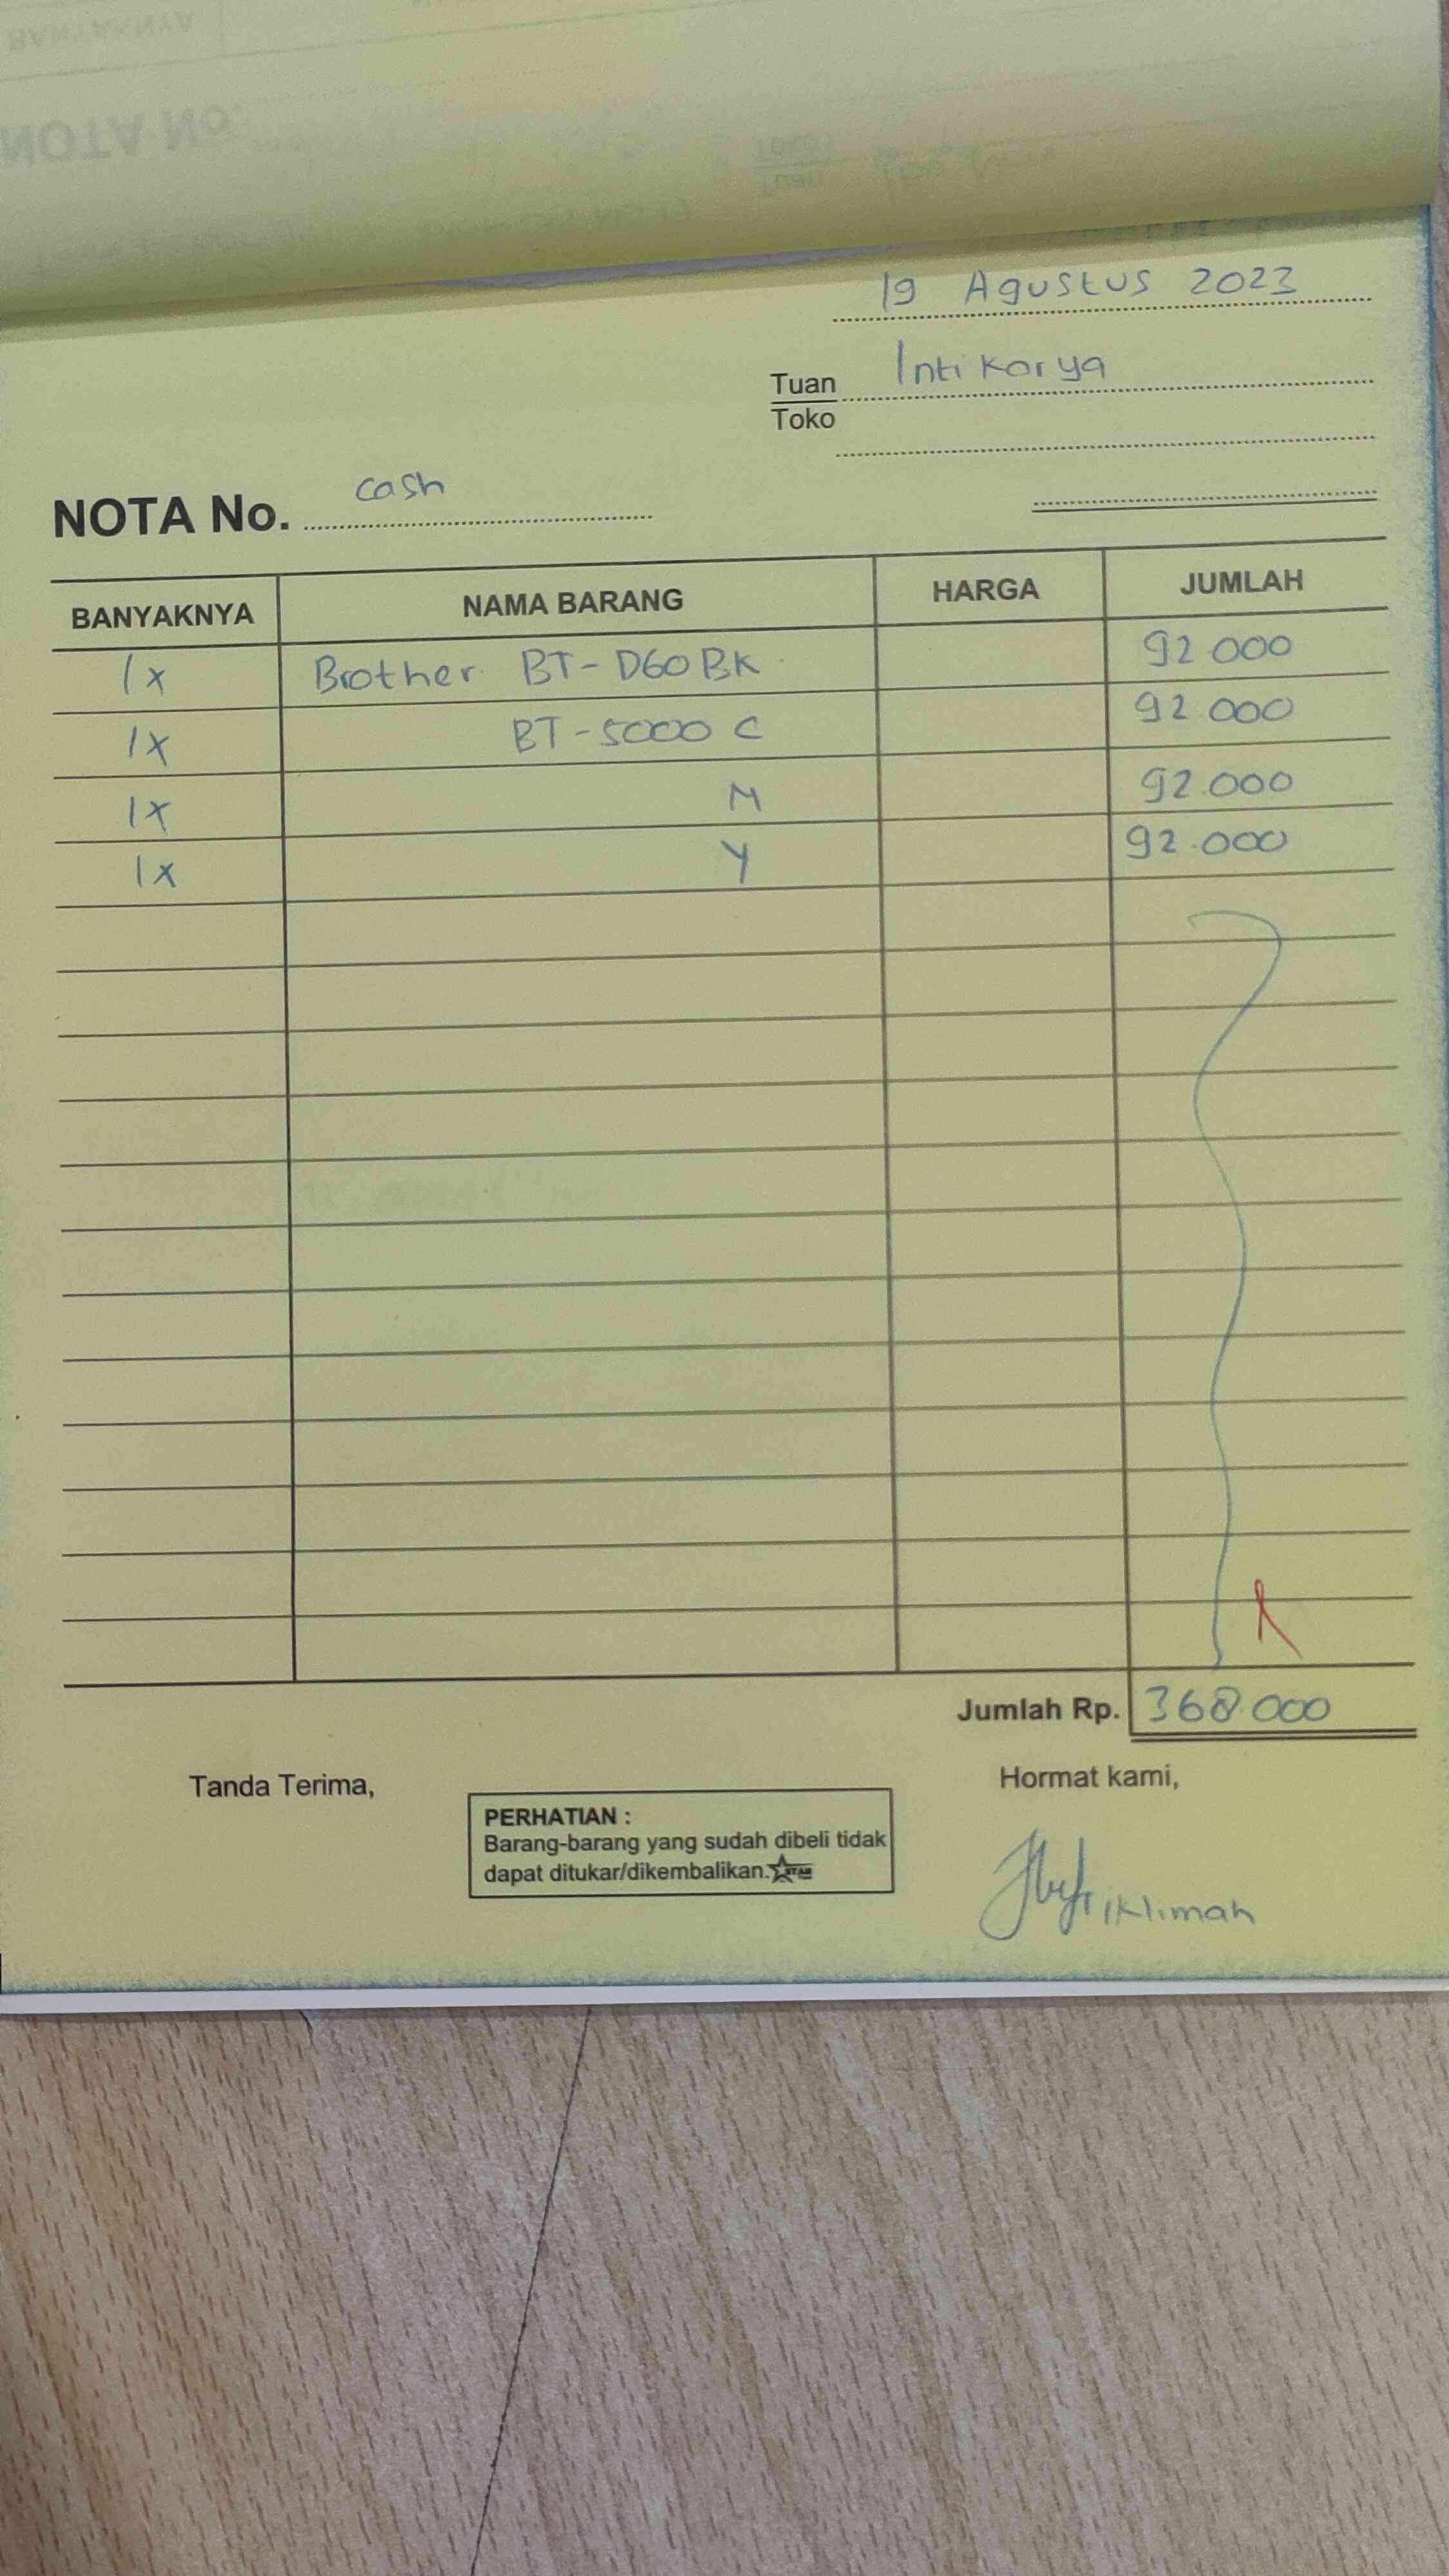 19 Agustus 2023
Tuan Inti Karya
Toko
NOTA No. cash
BANYAKNYA NAMA BARANG HARGA JUMLAH
1x Brother BT-D60BK 92.000
1x BT-5000 C 92.000
1x M 92.000
1x Y 92.000
Jumlah Rp. 368000
Tanda Terima, Hormat kami,
PERHATIAN :
Barang-barang yang sudah dibeli tidak
dapat ditukar/dikembalikan.
iklimah